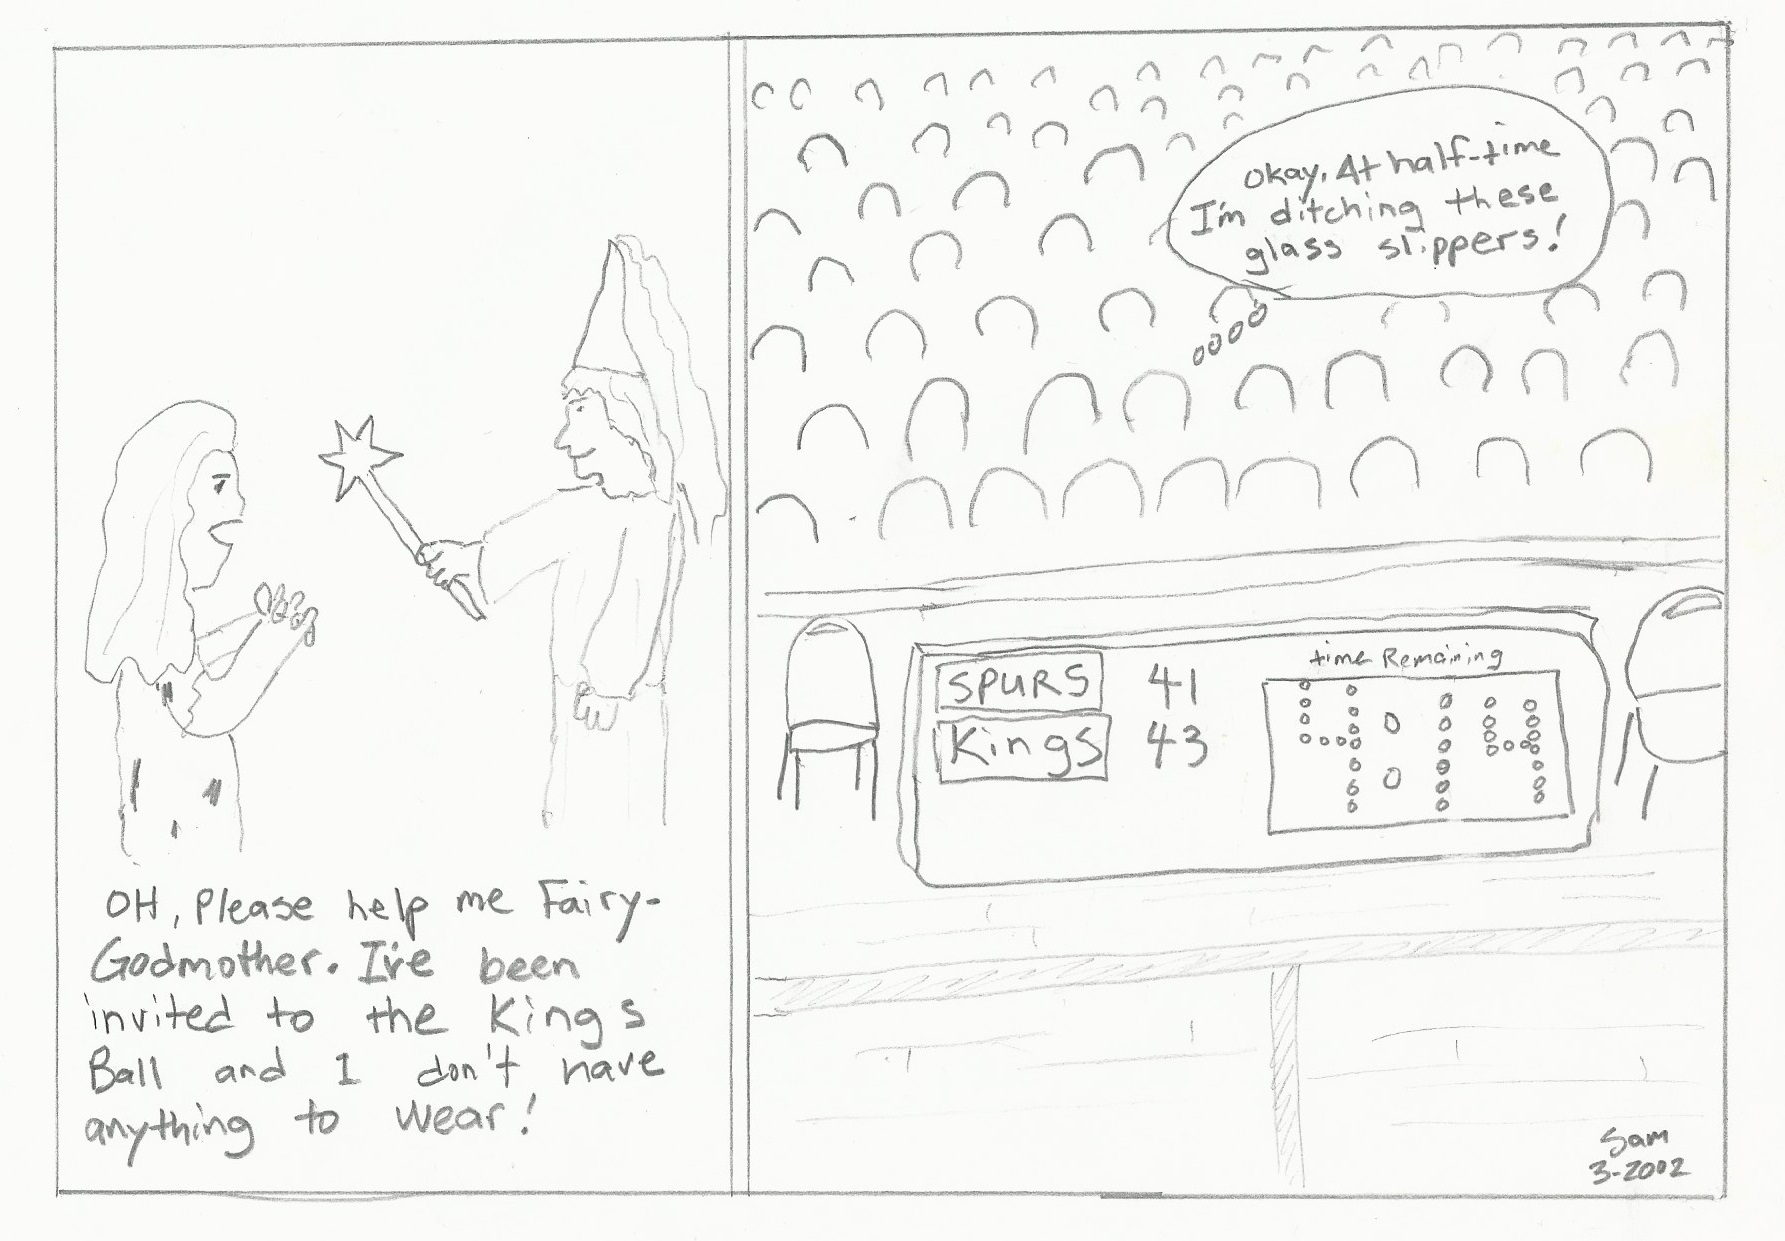 OH, Please help me Fairy-
Godmother. I've been
invited to the Kings
Ball and I don't have
anything to wear!
Okay. At half-time
I'm ditching these
glass slippers!
SPURS 41
Kings 43
time Remaining
4:14
Sam
3-2002